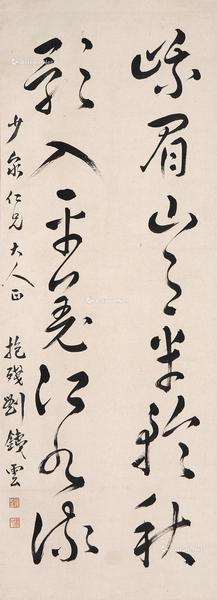 峨眉山月半輪秋
影入平羌江水流
少泉仁兄大人正 抱殘劉鐵雲